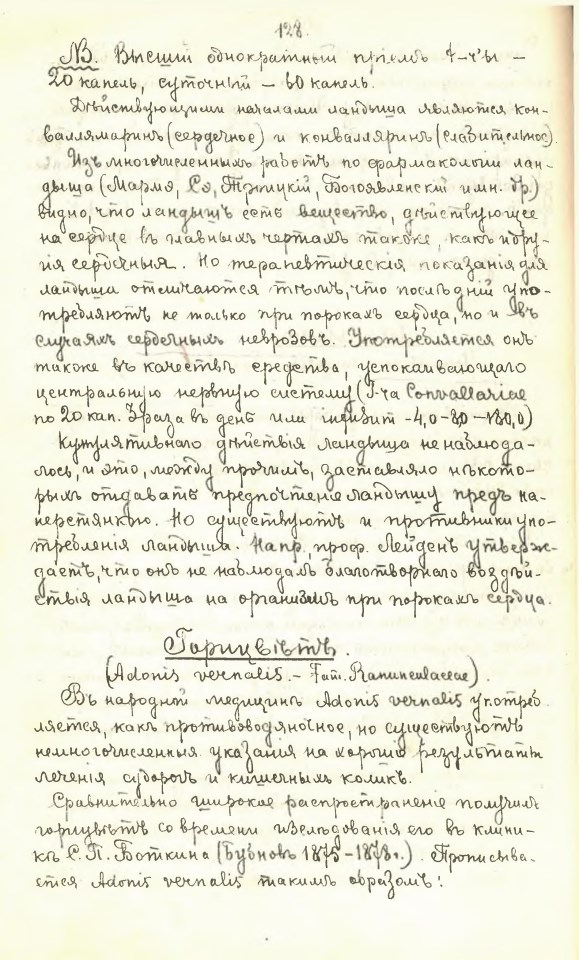 128.
NB. Высшій однократный пріемъ t-r'ы –
20 капель, суточный – 60 капель.
Дѣйствующими началами ландыша являются кон-
валлямаринъ (сердечное) и конвалляринъ (слабительное).
Изъ многочисленныхъ работъ по фармакологіи лан-
дыша (Маршэ, Сэ, Троицкій, Богоявленскій и мн. др.)
видно, что ландышъ есть вещество, дѣйствующее
на сердце въ главныхъ чертахъ такъ же, какъ и дру-
гія сердечныя. Но терапевтическія показанія для
ландыша отличаются тѣмъ, что послѣдній упо-
требляютъ не только при порокахъ сердца, но и въ
случаяхъ сердечныхъ неврозовъ. Употребляется онъ
также въ качествѣ средства, успокаивающаго
центральную нервную систему (T-ra Convallariae
по 20 кап. 3 раза въ день или инфузит – 4,0–8,0–180,0)
Кумулятивнаго дѣйствія ландыша не наблюда-
лось, и это, между прочимъ, заставляло нѣкото-
рыхъ отдавать предпочтеніе ландышу предъ на-
перстянкою. Но существуютъ и противники упо-
требленія ландыша. Напр., проф. Лейденъ утверж-
даетъ, что онъ не наблюдалъ благотворнаго воздѣй-
ствія ландыша на организмъ при порокахъ сердца.
Горицвѣтъ.
(Adonis vernalis. – Fam. Ranunculaceae).
Въ народной медицинѣ Adonis vernalis употреб-
ляется, какъ противоводяночное, но существуютъ
немногочисленныя указанія на хорошіе результаты
леченія судорогъ и кишечныхъ коликъ.
Сравнительно широкое распространеніе получилъ
горицвѣтъ со времени изслѣдованія его въ клини-
кѣ С. П. Боткина (Бубновъ 1875–1878 г.). Прописыва-
ется Adonis vernalis такимъ образомъ: